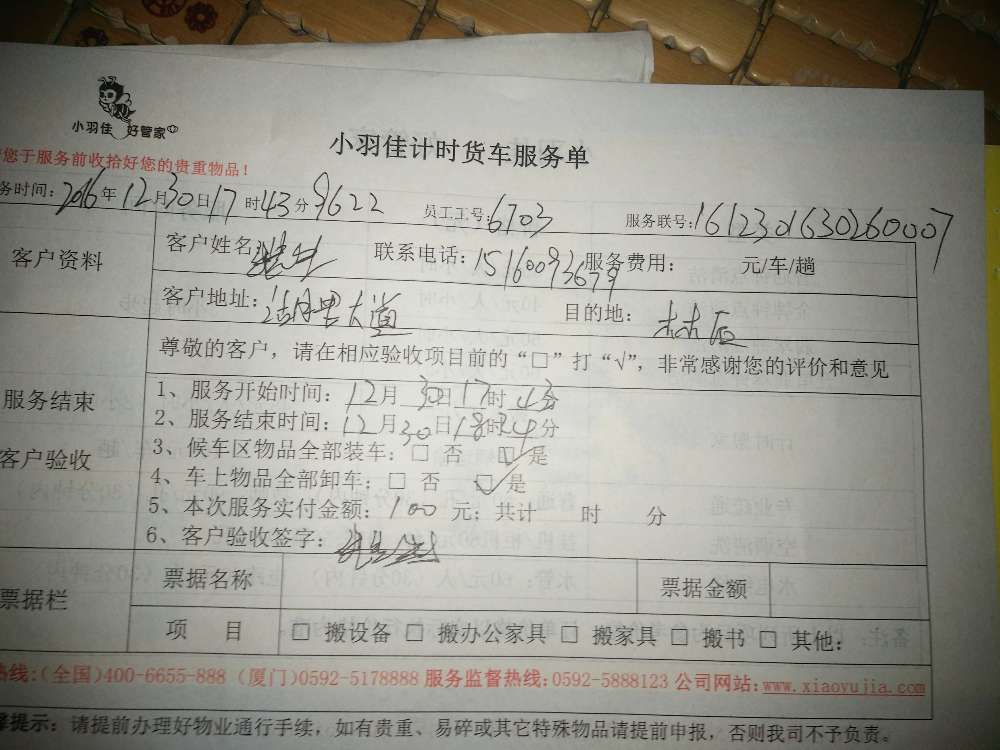 小羽佳 好管家
小羽佳计时货车服务单
您于服务前收拾好您的贵重物品！
务时间：2016年12月30日17时43分9622 员工工号：6703 服务联号：1612301630260007
客户资料
客户姓名： 联系电话：15160093679 服务费用： 元/车/趟
客户地址：湖里大道 目的地：林后
尊敬的客户，请在相应验收项目前的“□”打“√”，非常感谢您的评价和意见
服务结束
客户验收
1、服务开始时间：12月30日17时43分
2、服务结束时间：12月30日18时 分
3、候车区物品全部装车：□ 否 □ 是
4、车上物品全部卸车：□ 否 ☑ 是
5、本次服务实付金额：100 元；共计 时 分
6、客户验收签字：
票据栏
票据名称 票据金额
项 目 □ 搬设备 □ 搬办公家具 □ 搬家具 □ 搬书 □ 其他：
热线：(全国)400-6655-888 (厦门)0592-5178888 服务监督热线：0592-5888123 公司网站：www.xiaoyujia.com
馨提示：请提前办理好物业通行手续，如有贵重、易碎或其它特殊物品请提前申报，否则我司不予负责。